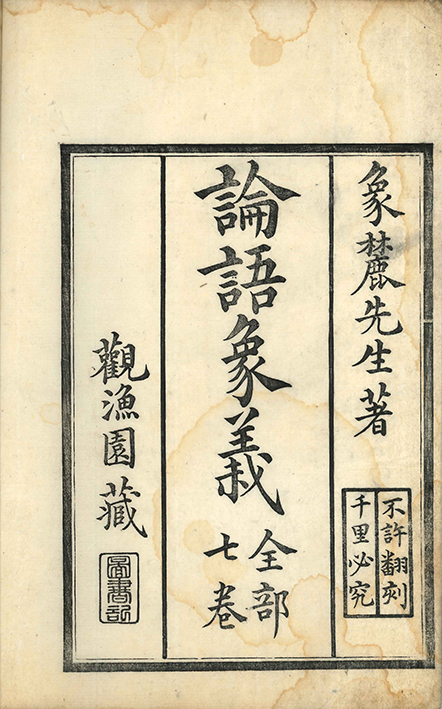 象麓先生著
不許翻刻
千里必究
論語象義
全部
七卷
觀漁園藏
圖書記